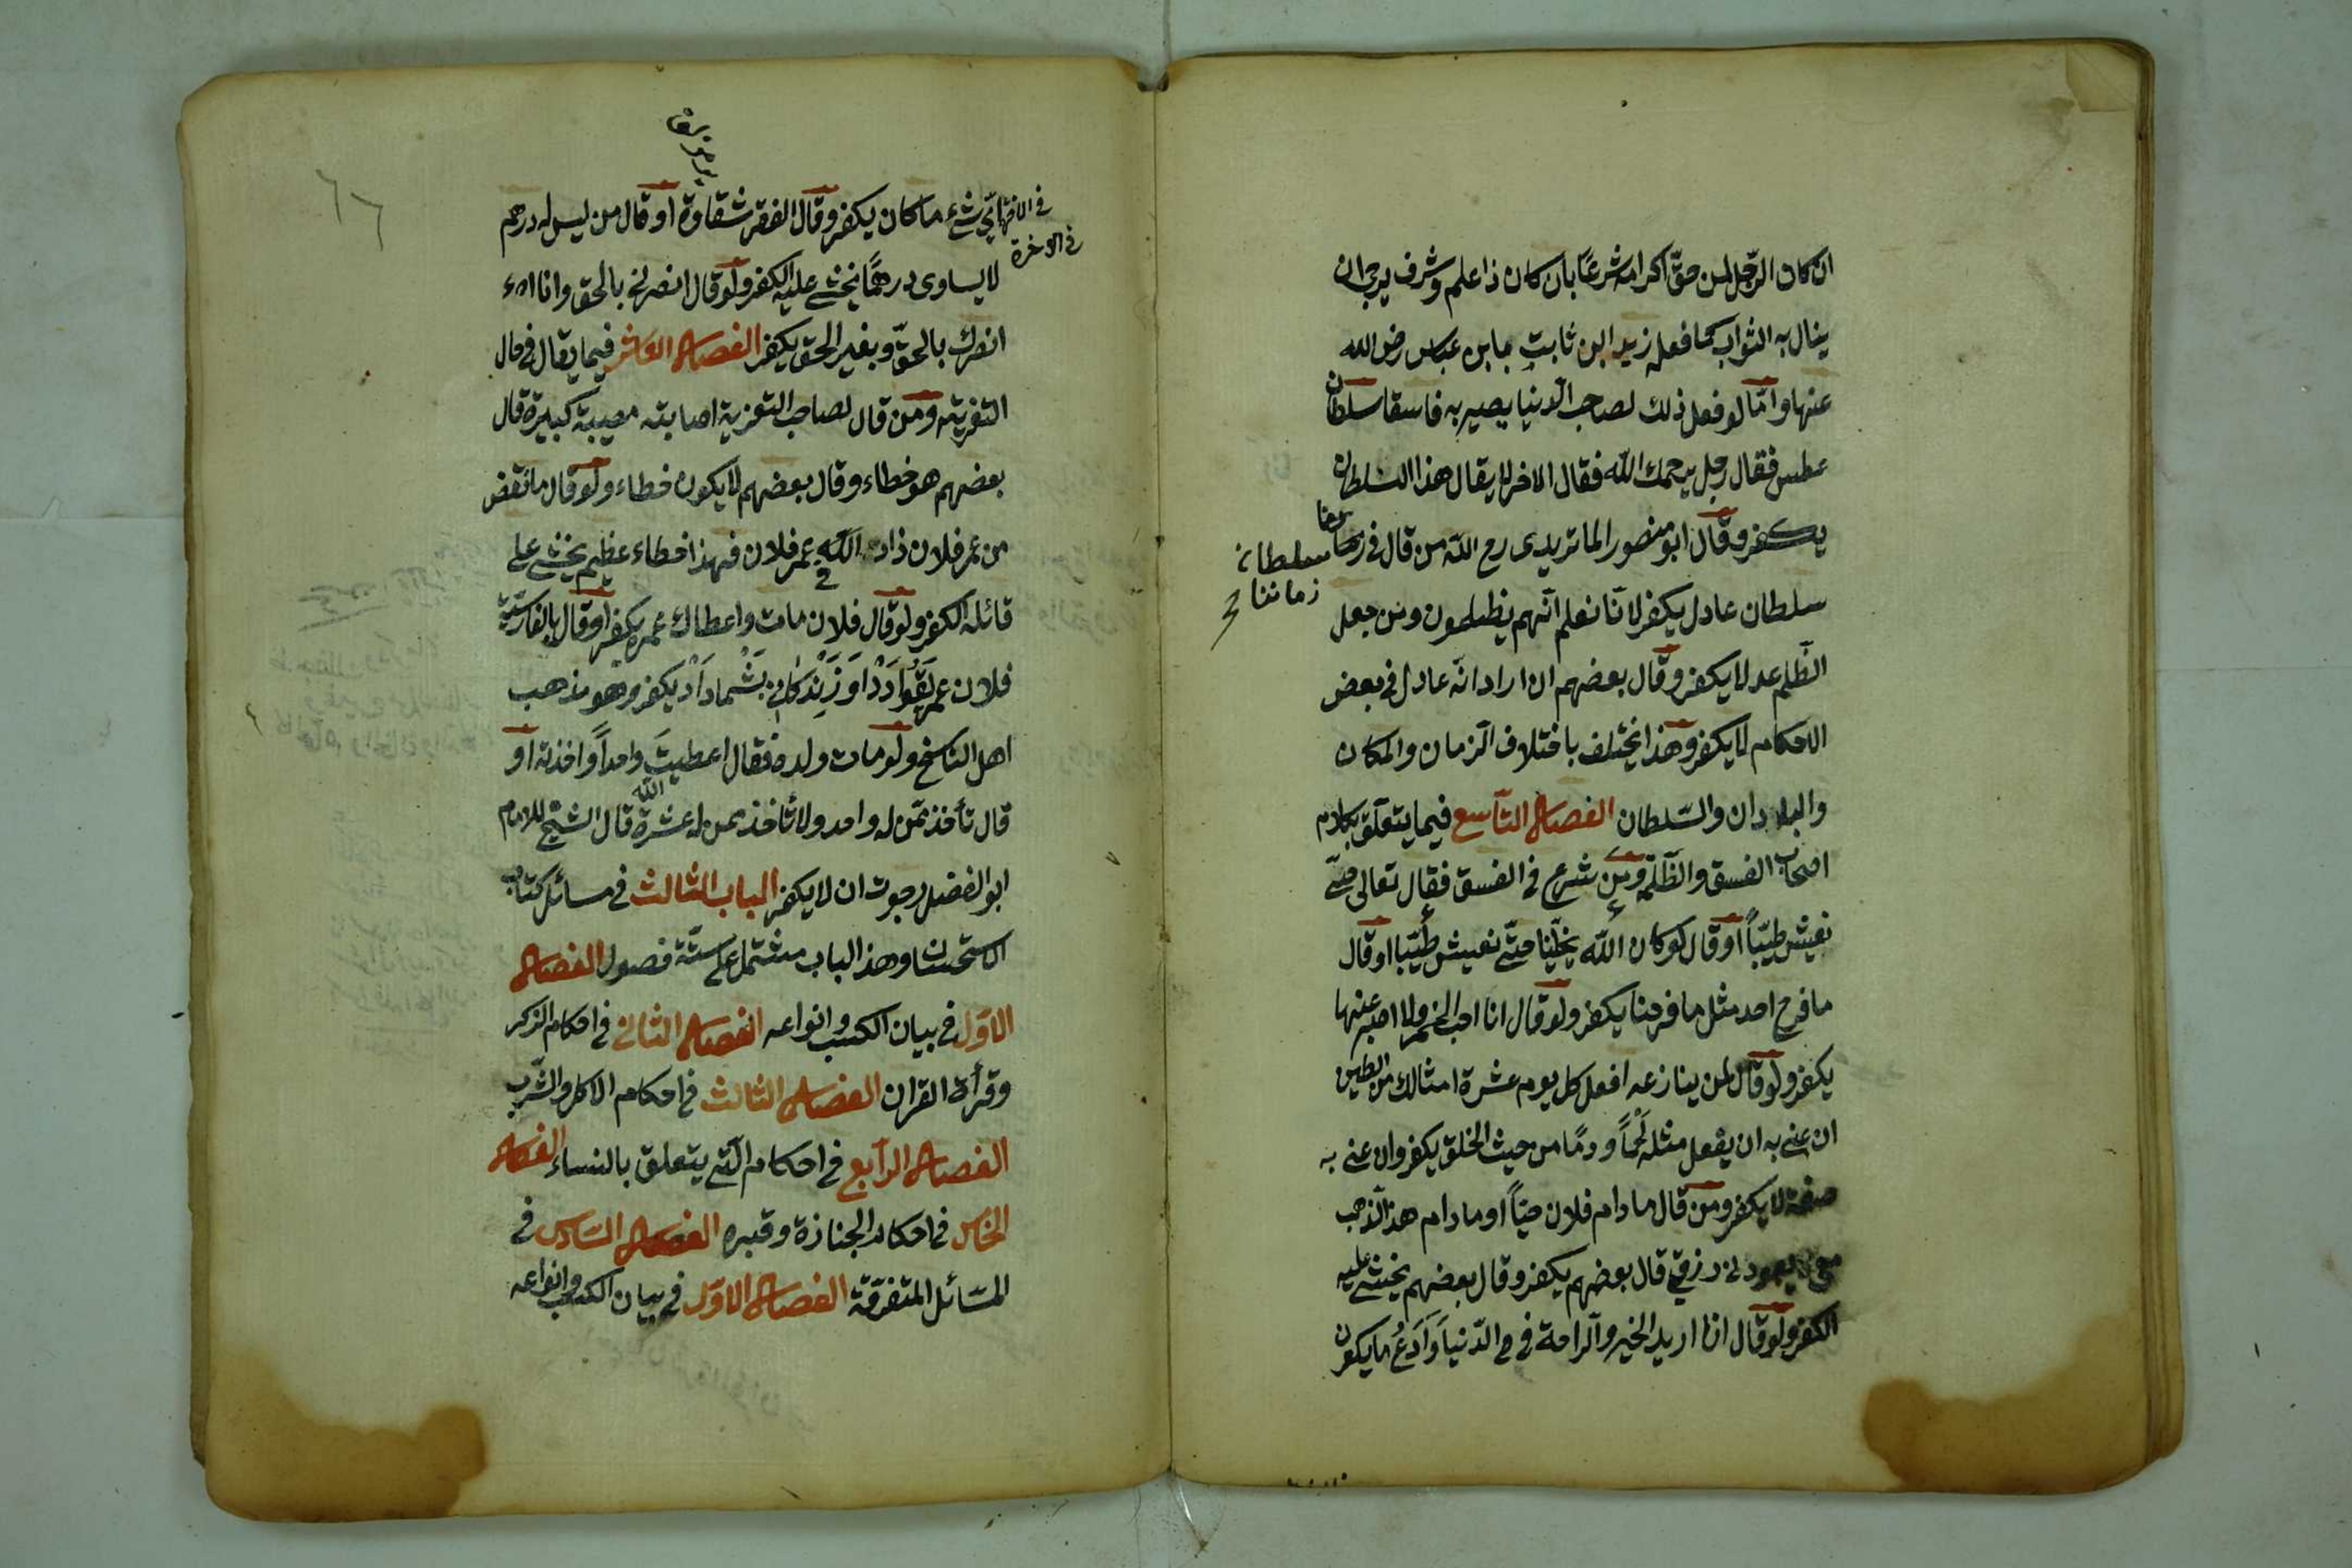 ان كان الرّجل لمن حقّ اكرامه شرعًا بان كان ذا علم وشرف يرجى ان
ينال به الثواب كما فعل زيد ابن ثابت بابن عباس رضى الله
عنهما وامّا لو فعل ذلك لصاحب الدنيا يصير به فاسقا سلطان
عطس فقال رجل يرحمك الله فقال الاخر لا يقال هذا السلطان
يكفر وقال ابو منصور الماتريدى رح الله من قال فى
سلطان زماننا
سلطان عادل يكفر لانّا نعلم انّهم يظلمون ومن جعل
الظّلم عدلا يكفر وقال بعضهم ان اراد انّه عادل فى بعض
الاحكام لا يكفر وهذا يختلف باختلاف الزمان والمكان
والبلادان والسّلطان الفصل التّاسع فيما يتعلّق بكلام
اصحاب الفسق والظّلمة ومن شرع فى الفسق فقال تعالى حتّى
نعيش طيّباً او قال لو كان الله يخلّينا حتّى نعيش طيّبا او قال
ما فرح احد مثل ما فرحنا يكفر ولو قال انا احبّ الخمر ولا اصبر عنها
يكفر ولو قال لمن ينازعه افعل كل يوم عشرة امثالك من الطين
ان عنى به ان يفعل مثله لَحْماً ودمًا من حيث الخلق يكفر وان عنى به
صفة لا يكفر ومن قال مادام فلان حيّاً او مادام هذا الذهب
معى لا يعود لى رزقى قال بعضهم يكفر وقال بعضهم يخشى عليه
الكفر ولو قال انا اريد الخير والراحة فى الدّنيا وَاَدَعُ ما يكون
فى الاخرة
اىّ شىء ما كان يكفر وقال الفقر شقاوة او قال من ليس له درهم
لا يساوى درهمًا يخشى عليه الكفر ولو قال انصرنى بالحق وانا
انصرك بالحقّ وبغير الحق يكفر الفصل العاشر فيما يقال فى حال
التعزية ومن قال لصاحب التعزية اصابته مصيبة كبيرة قال
بعضهم هو خطاء وقال بعضهم لا يكون خطاء ولو قال ما نقض
من عمر فلان زاد الله عمر فلان فهذا خطاء عظيم يخشى على
قائله الكفر ولو قال فلان مات واعطاك عمره يكفر او قال بالفارسيّة
فلان عمر بَتُو دَادْ اَوْ زِنْدَكانى بَشْما دَادْ يكفر وهو مذهب
اهل التناسخ ولو مات ولده فقال اعطيتَ واحداً واخذته او
قال تأخذ ممّن له واحد ولا تأخذ ممن له عشرة قال الشّيخ الامام
ابو الفضل رجوت ان لا يكفر الباب الثالث فى مسائل كتاب
الاستحسان وهذا الباب مشتمل على ستّة فصول الفصل
الاوّل فى بيان الكسب وانواعه الفصل الثانى فى احكام الذكر
وقرأة القران الفصل الثالث فى احكام الاكل والشّرب
الفصل الرّابع فى احكام الّتى يتعلق بالنساء الفصل
الخامس فى احكام الجنازة وقبره الفصل السّادس فى
المسَائل المتفرّقة الفصل الاوّل فى بيان الكسب وانواعه